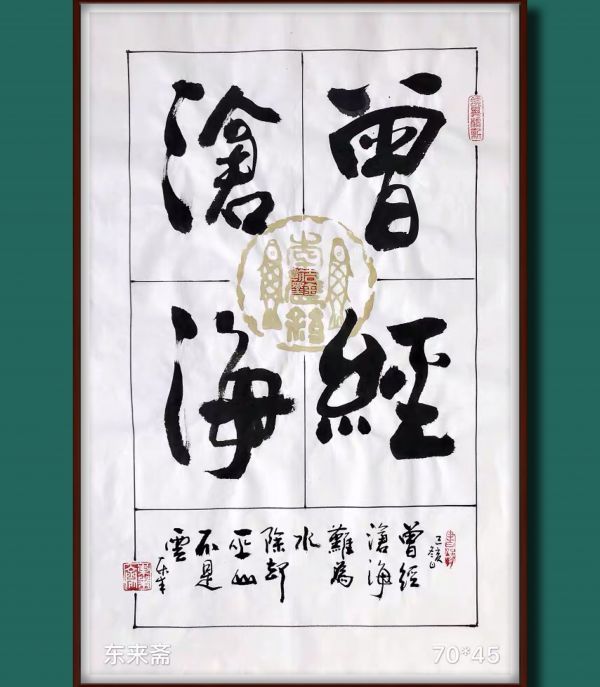 曾經
滄海
己亥
曾經
滄海
難為
水
除卻
巫山
不是
雲
东来斋
70*45